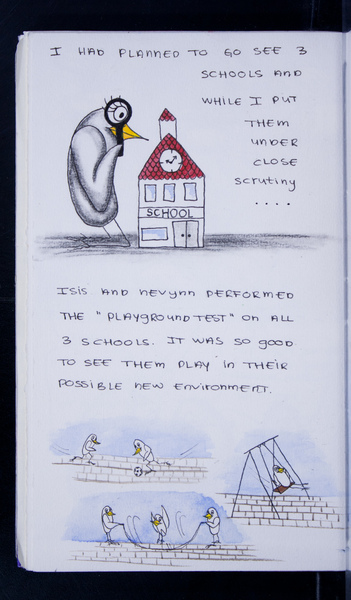 I HAD PLANNED TO GO SEE 3
SCHOOLS AND
WHILE I PUT
THEM
UNDER
CLOSE
SCRUTINY
....
SCHOOL
ISIS AND NEVYNN PERFORMED
THE "PLAYGROUND TEST" ON ALL
3 SCHOOLS. IT WAS SO GOOD
TO SEE THEM PLAY IN THEIR
POSSIBLE NEW ENVIRONMENT.